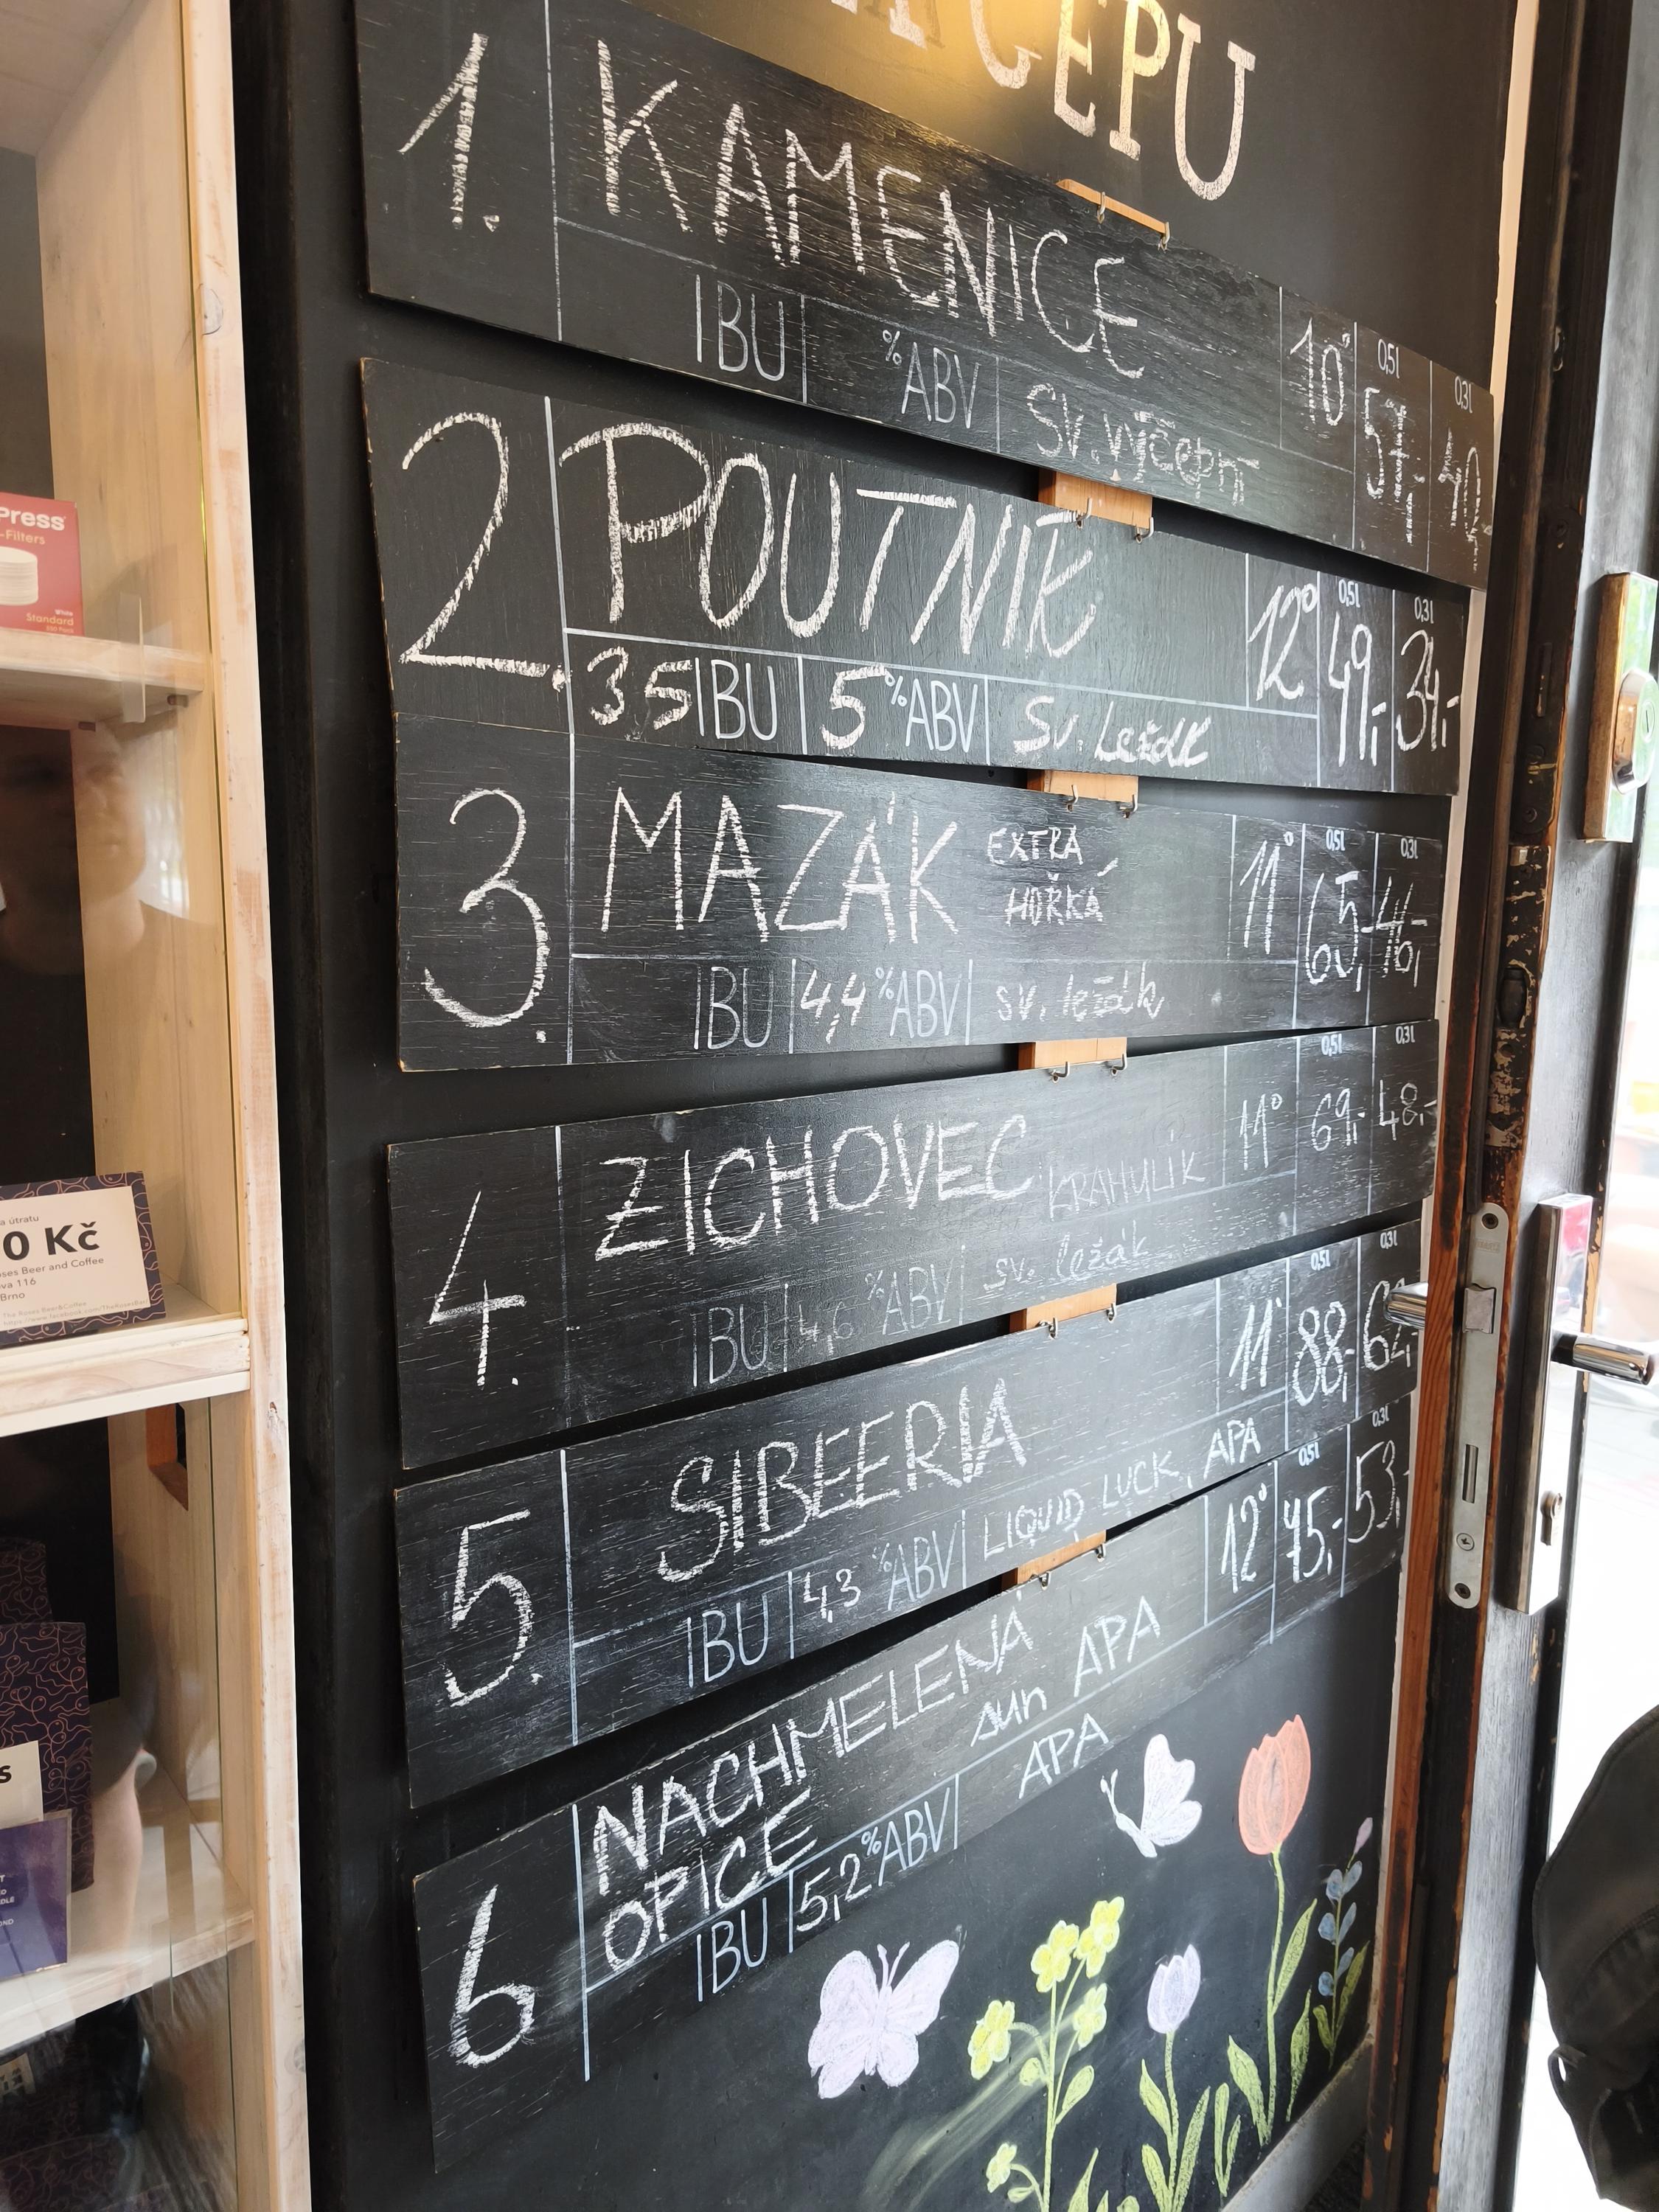 ČEPU
1. KAMENICE 10° 0,5l 57,- 0,3l 40,-
IBU %ABV sv. výčepní
2. POUTNIK 12° 0,5l 49,- 0,3l 34,-
35 IBU 5 %ABV sv. ležák
3. MAZÁK EXTRA HOŘKÁ 11° 0,5l 65,- 0,3l 46,-
IBU 4,4 %ABV sv. ležák
4. ZICHOVEC KRAHULÍK 11° 0,5l 69,- 0,3l 48,-
IBU 4,6 %ABV sv. ležák
5. SIBEERIA 11° 0,5l 88,- 0,3l
IBU 4,3 %ABV LIQUID LUCK, APA
6. NACHMELENÁ 12° 0,5l 75,- 0,3l 53,-
OPICE sun APA
IBU 5,2 %ABV APA
Press
-Filters
White
Standard
a útratu
0 Kč
oses Beer and Coffee
va 116
Brno
The Roses Beer&Coffee
S